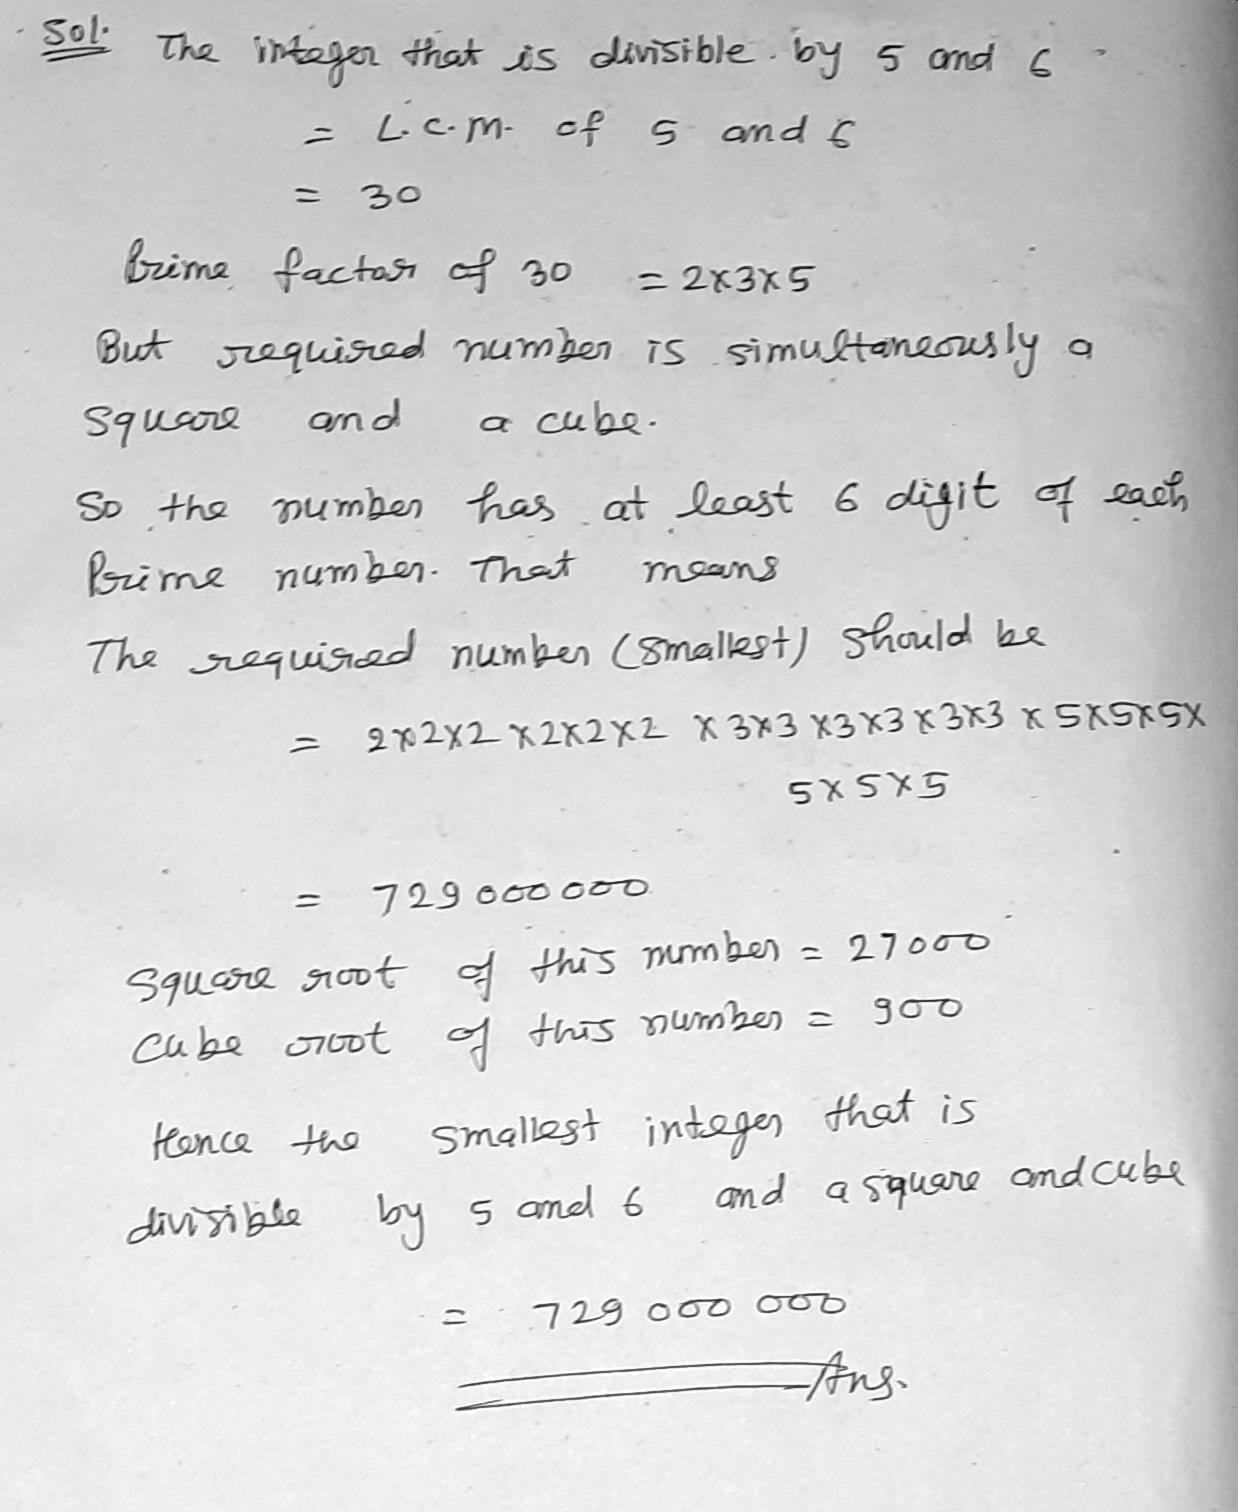 Sol. The integer that is divisible by 5 and 6
= L.C.M. of 5 and 6
= 30
Prime factor of 30 = 2×3×5
But required number is simultaneously a
square and a cube.
So the number has at least 6 digit of each
Prime number. That means
The required number (smallest) should be
= 2×2×2×2×2×2 × 3×3×3×3×3×3 × 5×5×5×
5×5×5
= 729000000
Square root of this number = 27000
Cube root of this number = 900
Hence the smallest integer that is
divisible by 5 and 6 and a square and cube
= 729 000 000
Ans.